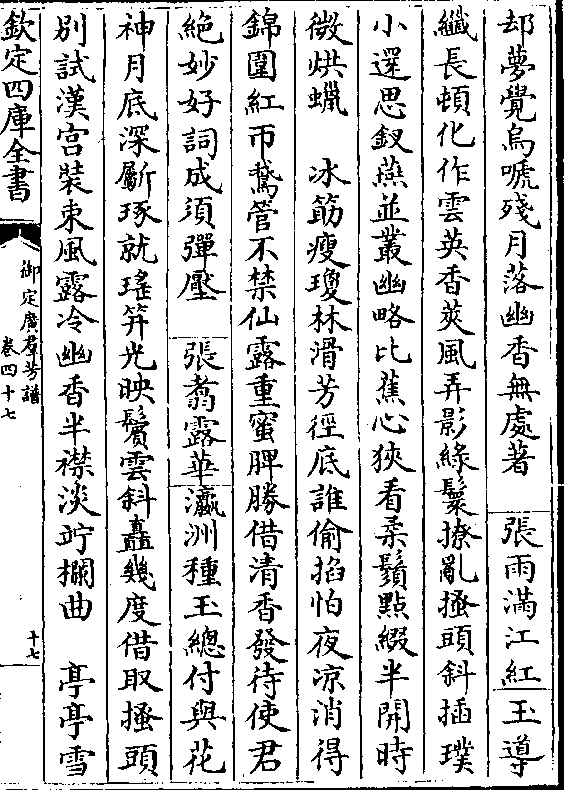 却夢覺烏嗁殘月落幽香無處著　張雨滿江紅玉導
纎長頓化作雲英香莢風弄影綠鬟撩亂搔頭斜插璞
小還思釵燕並叢幽略比蕉心狹看柔鬚點綴半開時
微烘蠟　冰筯瘦瓊林滑芳徑底誰偷掐怕夜凉消得
錦圍紅帀鵞管不禁仙露重蜜脾勝借清香發待使君
絶妙好詞成須彈壓　張翥露華瀛洲種玉總付與花
神月底深斸琢就瑤笄光映鬢雲斜矗幾度借取搔頭
别試漢宫裝束風露冷幽香半襟淡竚攔曲　亭亭雪
欽定四庫全書
御定廣羣芳譜
卷四十七
十七